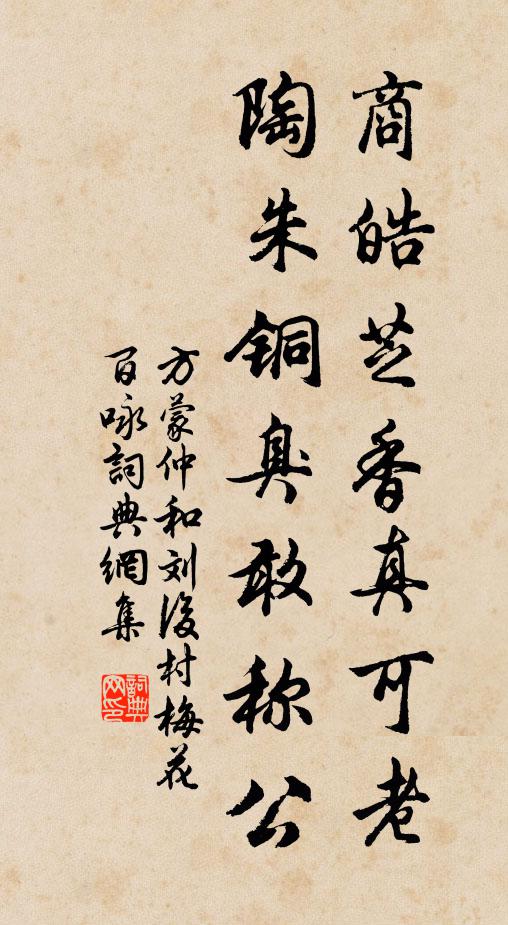 商皓芝香真可老
陶朱铜臭敢称公
方蒙仲和刘後村梅花
百咏詞典網集
詞典网印